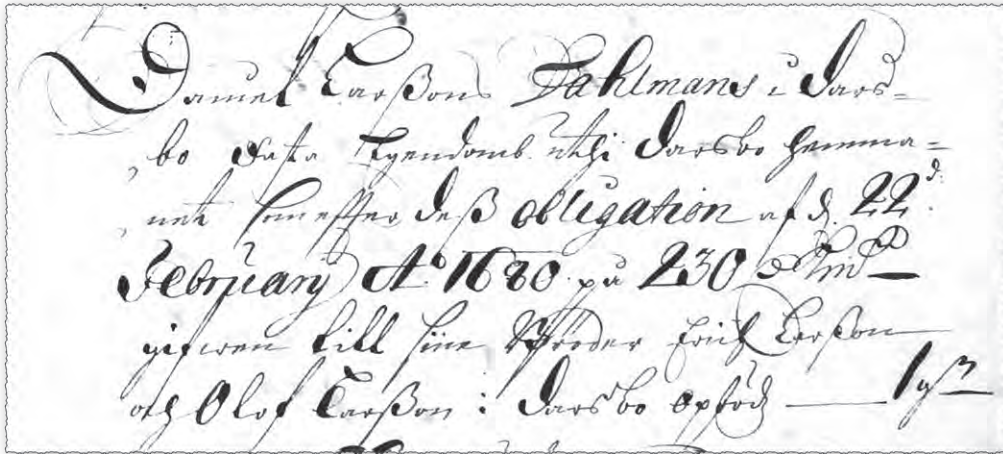 Daniel Larßons Dahlmans i Dars=
bo fasta Egendomb uthi Darsbo hemma=
net som effter deß obligation af d. 22 d:
February Ao 1680 på 230
gifwen till sine Bröder Erich Larßon
och Olof Larßon i Darsbo opförd — 1